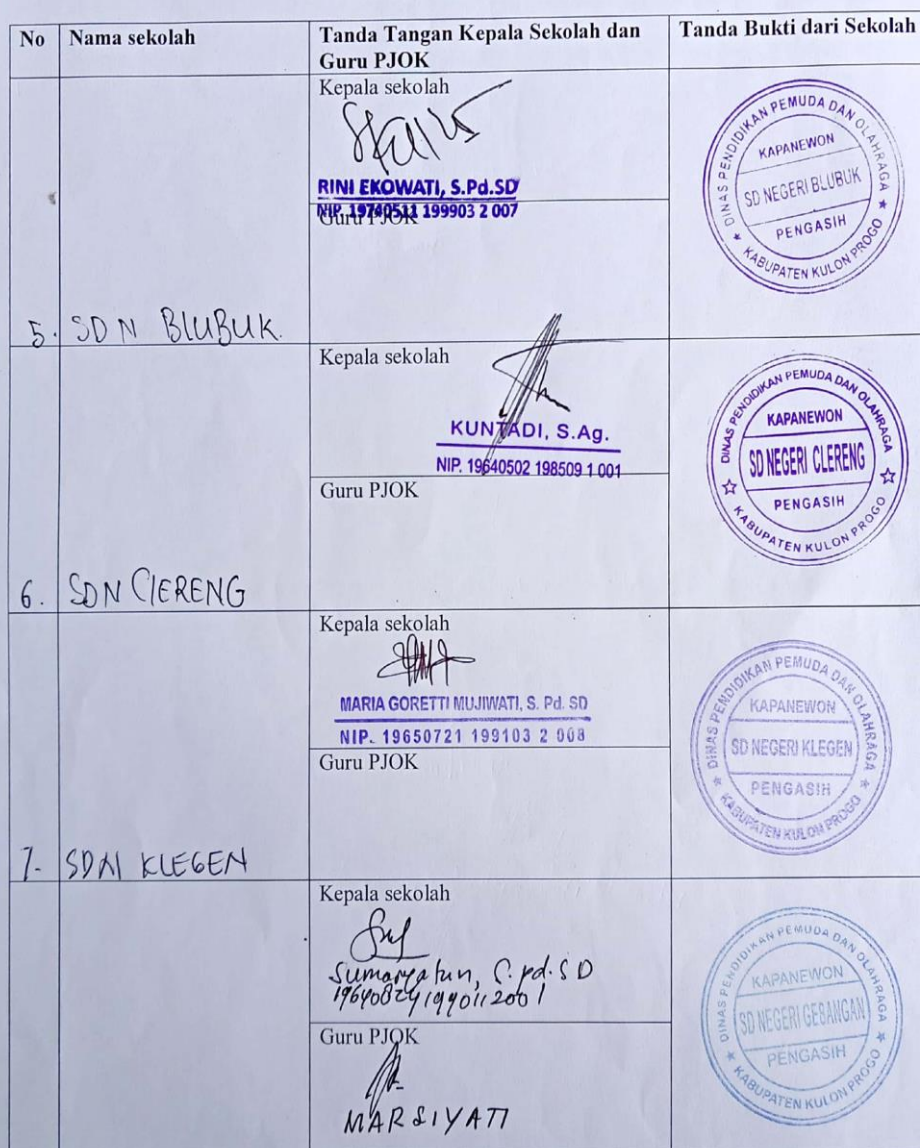 No
Nama sekolah
Tanda Tangan Kepala Sekolah dan
Guru PJOK
Tanda Bukti dari Sekolah
5. SDN BLUBUK.
Kepala sekolah
RINI EKOWATI, S.Pd.SD
NIP. 19740511 199903 2 007
Guru PJOK
DINAS PENDIDIKAN PEMUDA DAN OLAHRAGA
KAPANEWON
SD NEGERI BLUBUK
PENGASIH
KABUPATEN KULON PROGO
6. SDN CLERENG
Kepala sekolah
KUNTADI, S.Ag.
NIP. 19640502 198509 1 001
Guru PJOK
DINAS PENDIDIKAN PEMUDA DAN OLAHRAGA
KAPANEWON
SD NEGERI CLERENG
PENGASIH
KABUPATEN KULON PROGO
7. SDN KLEGEN
Kepala sekolah
MARIA GORETTI MUJIWATI, S. Pd. SD
NIP. 19650721 199103 2 008
Guru PJOK
DINAS PENDIDIKAN PEMUDA DAN OLAHRAGA
KAPANEWON
SD NEGERI KLEGEN
PENGASIH
KABUPATEN KULON PROGO
Kepala sekolah
Sumaryatun, S.pd.SD
196408241990112001
Guru PJOK
MARSIYATI
DINAS PENDIDIKAN PEMUDA DAN OLAHRAGA
KAPANEWON
SD NEGERI GEBANGAN
PENGASIH
KABUPATEN KULON PROGO